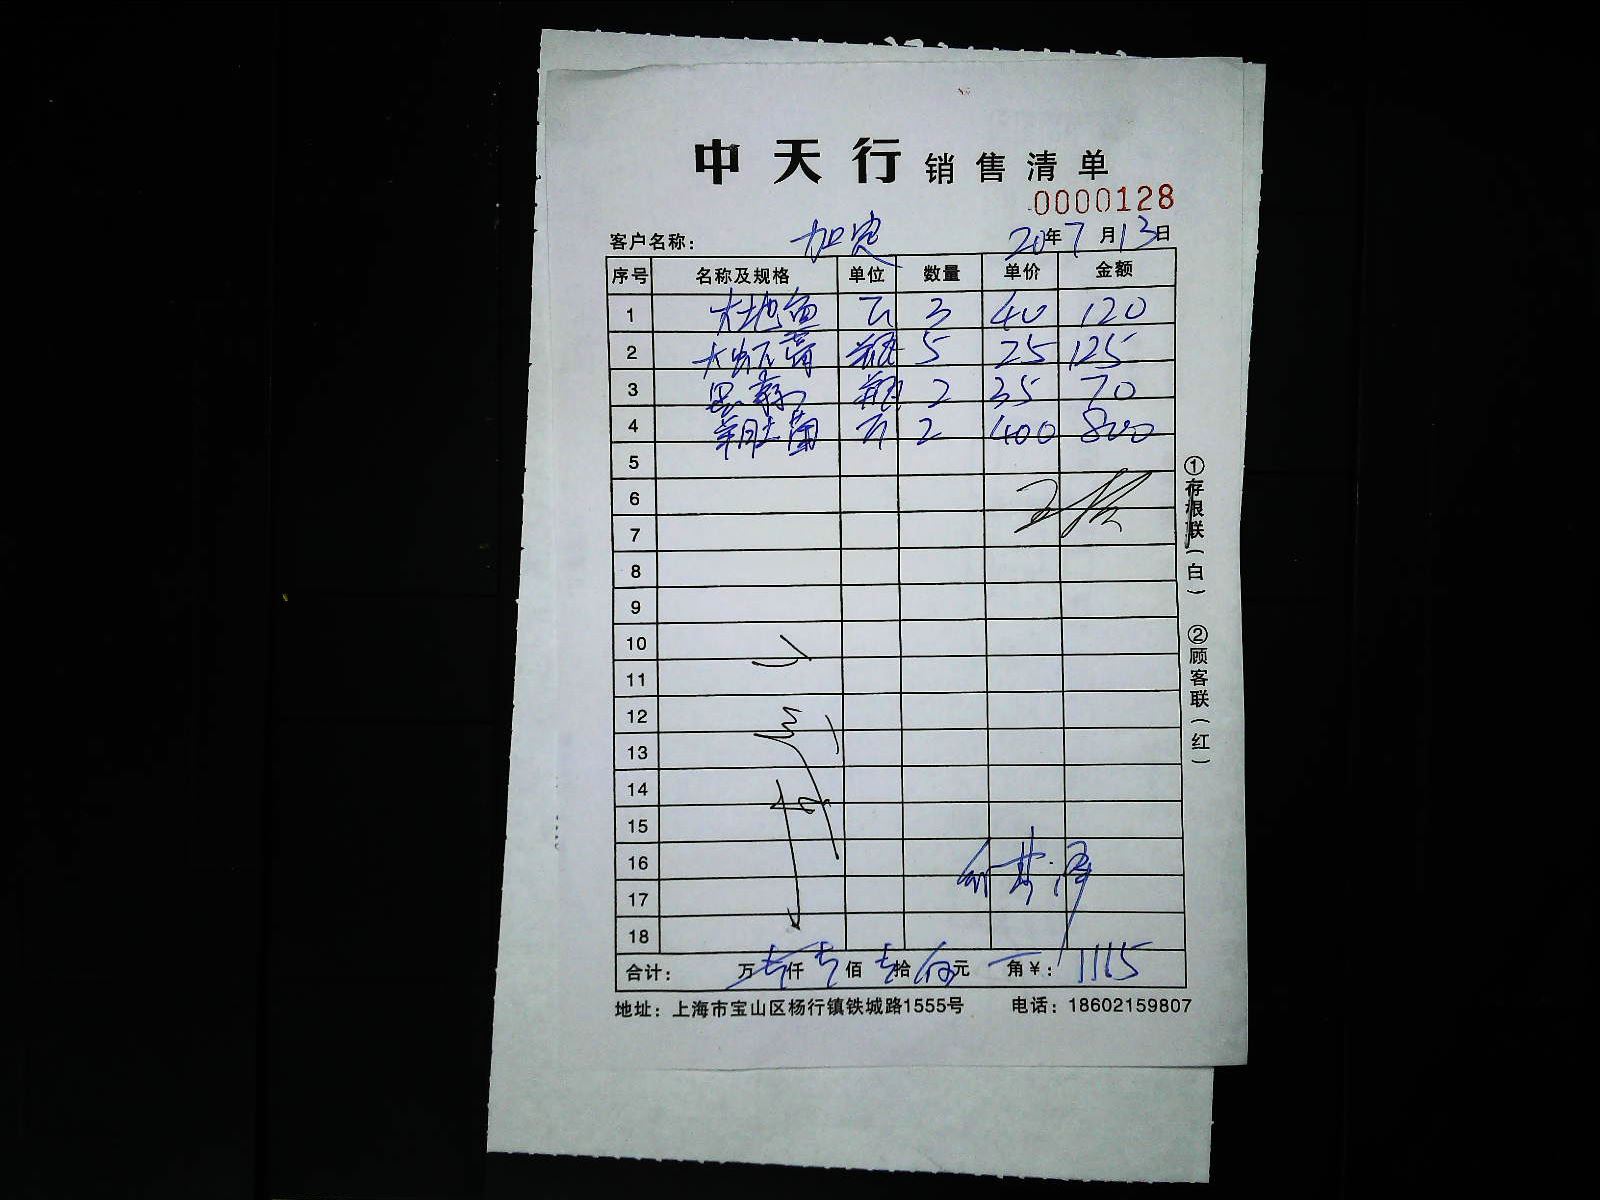 中天行 销售清单
0000128
客户名称: 加定 20年7月13日
序号 名称及规格 单位 数量 单价 金额
1 大地鱼 斤 3 40 120
2 瓶 5 25 125
3 瓶 2 35 70
4 羊肚菌 斤 2 400 800
5
6
7
8
9
10
11
12
13
14
15
16
17
18
合计: 万壹仟壹佰壹拾伍元 角¥: 1115
地址: 上海市宝山区杨行镇铁城路1555号 电话: 18602159807
①存根联(白) ②顾客联(红)